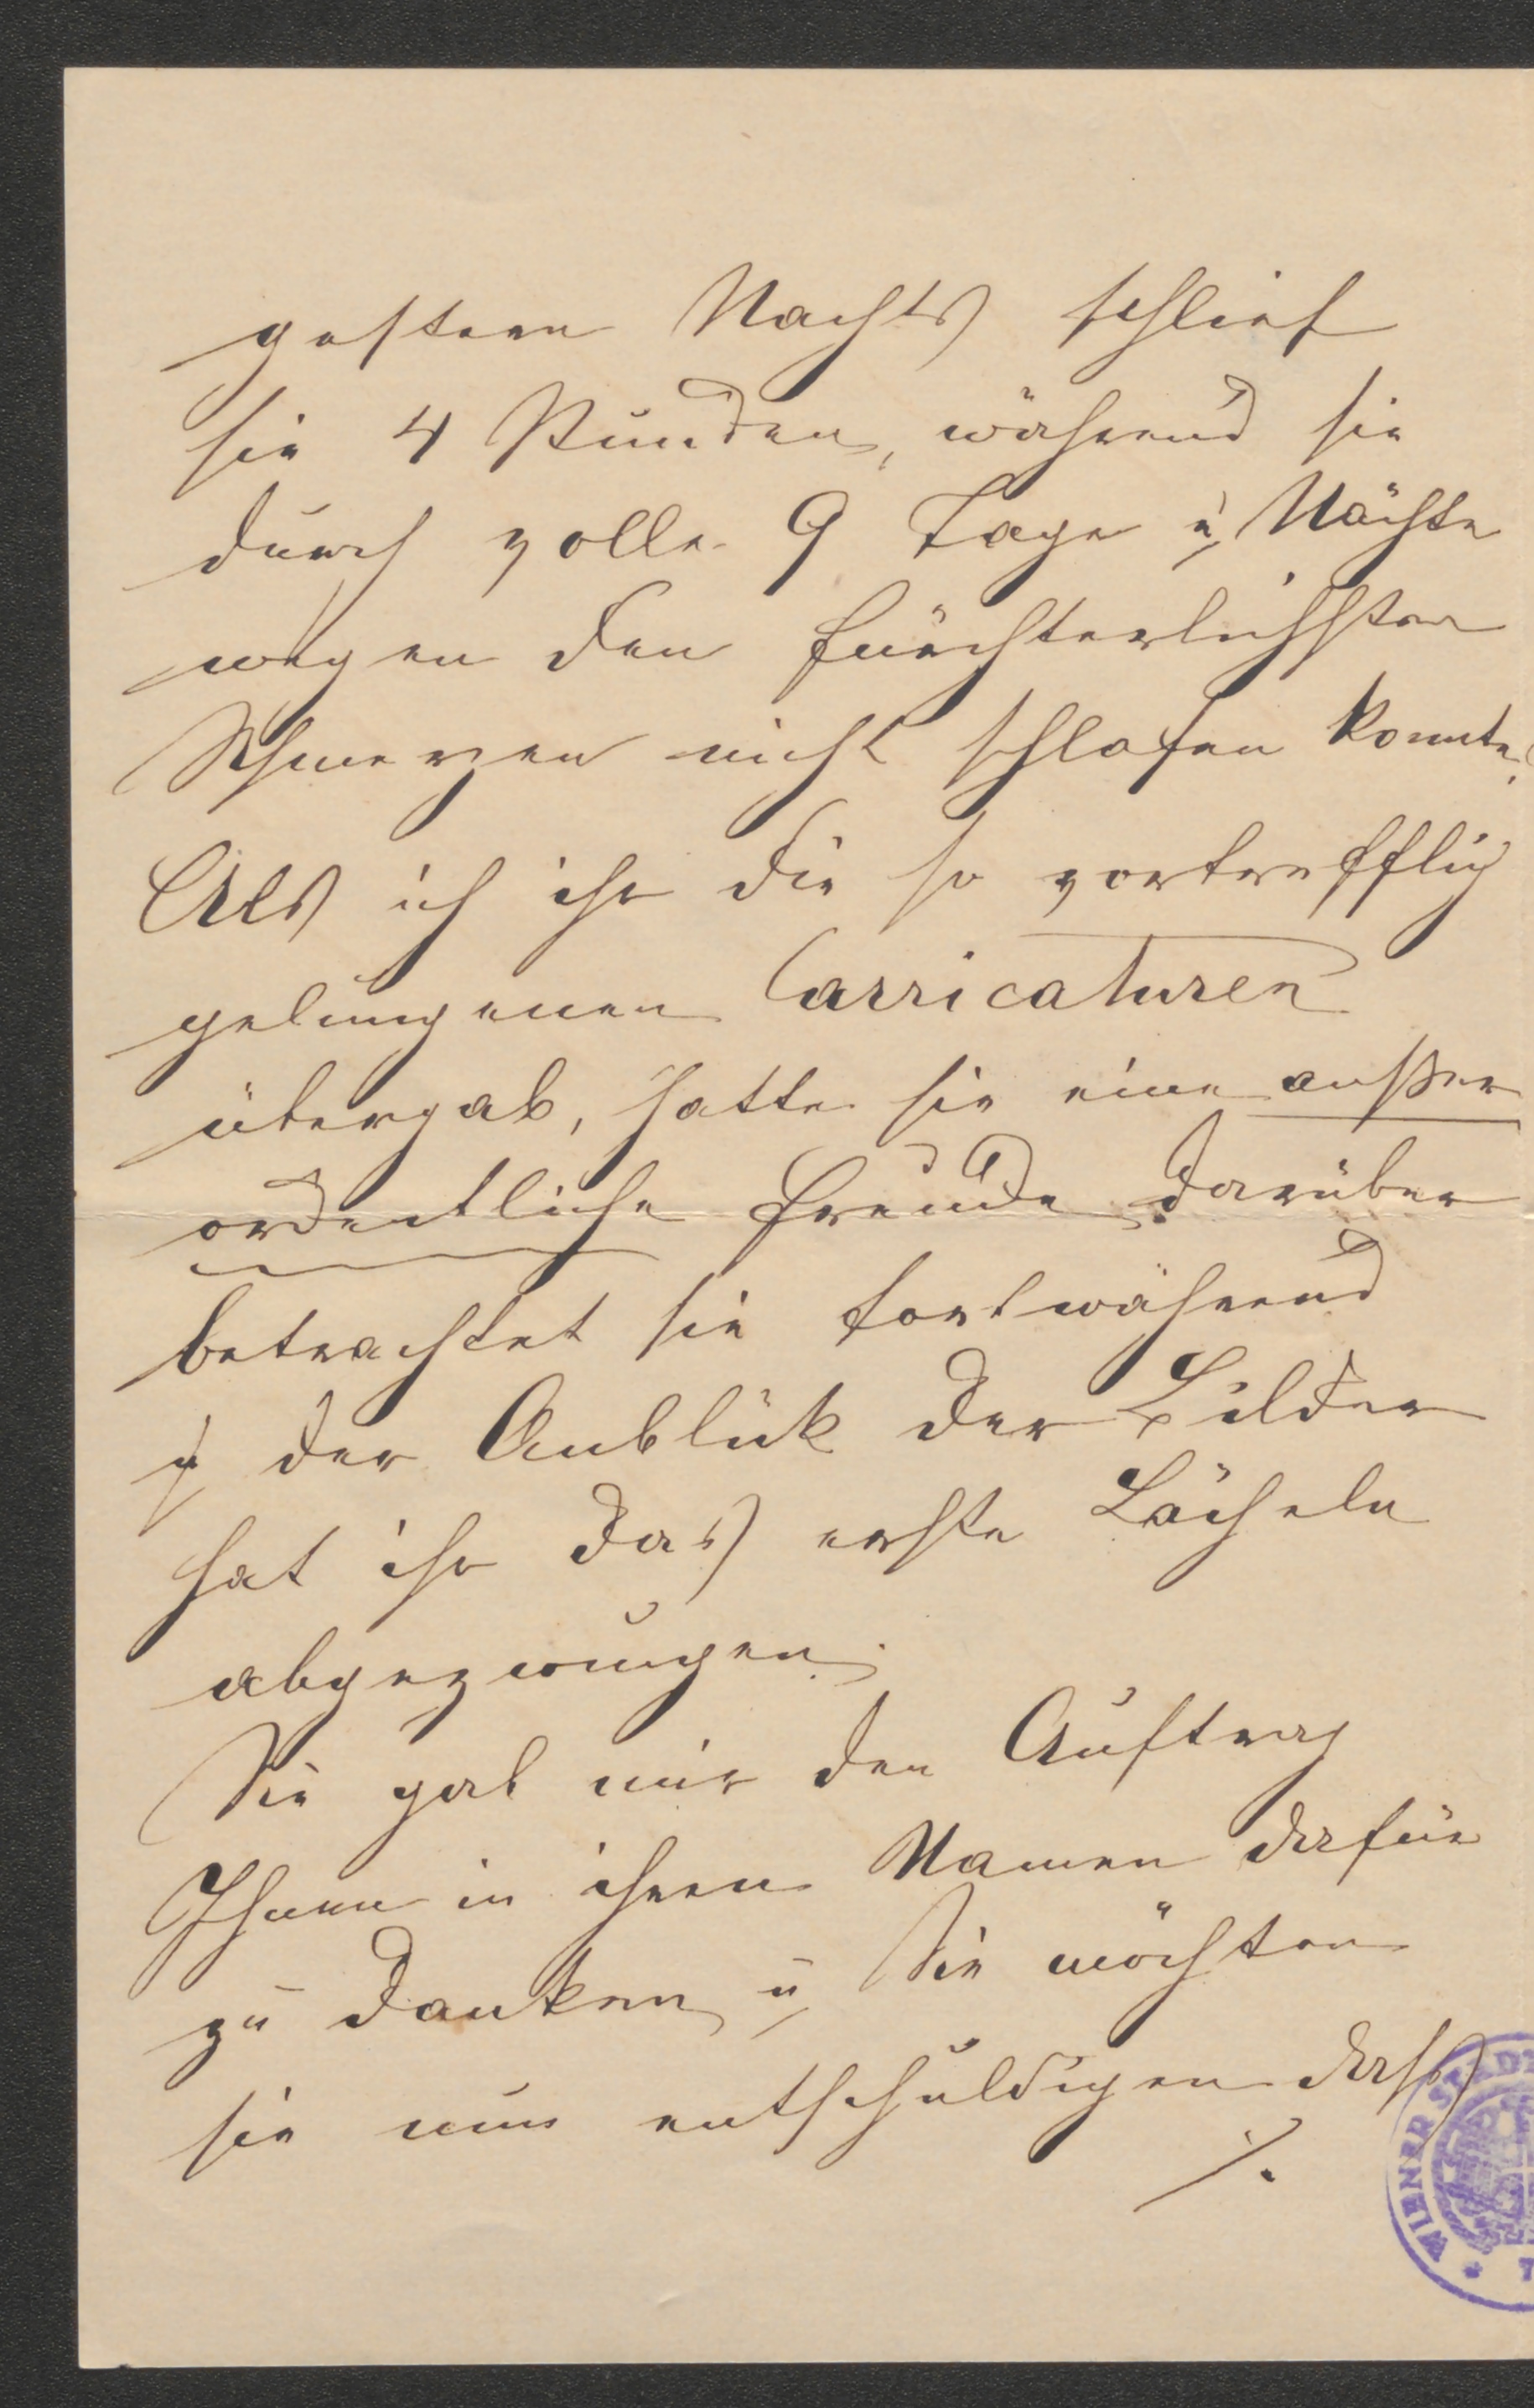 gestern Nachts schlief
sie 4 Stunden, während sie
durch volle 9 Tage u. Nächte
wegen den fürchterlichsten
Schmerzen nicht schlafen konnte.
Als ich ihr die so vortrefflich
gelungenen Carricaturen
übergab, hatte sie eine außer
ordentliche Freude darüber
betrachtet sie fortwährend
u. der Anblick der Bilder
hat ihr das erste Lächeln
abgezwungen.
Sie gab mir den Auftrag
Ihnen in ihren Namen dafür
zu danken, u. Sie möchten
sie nur entschuldigen daß
./.
WIENER STADT